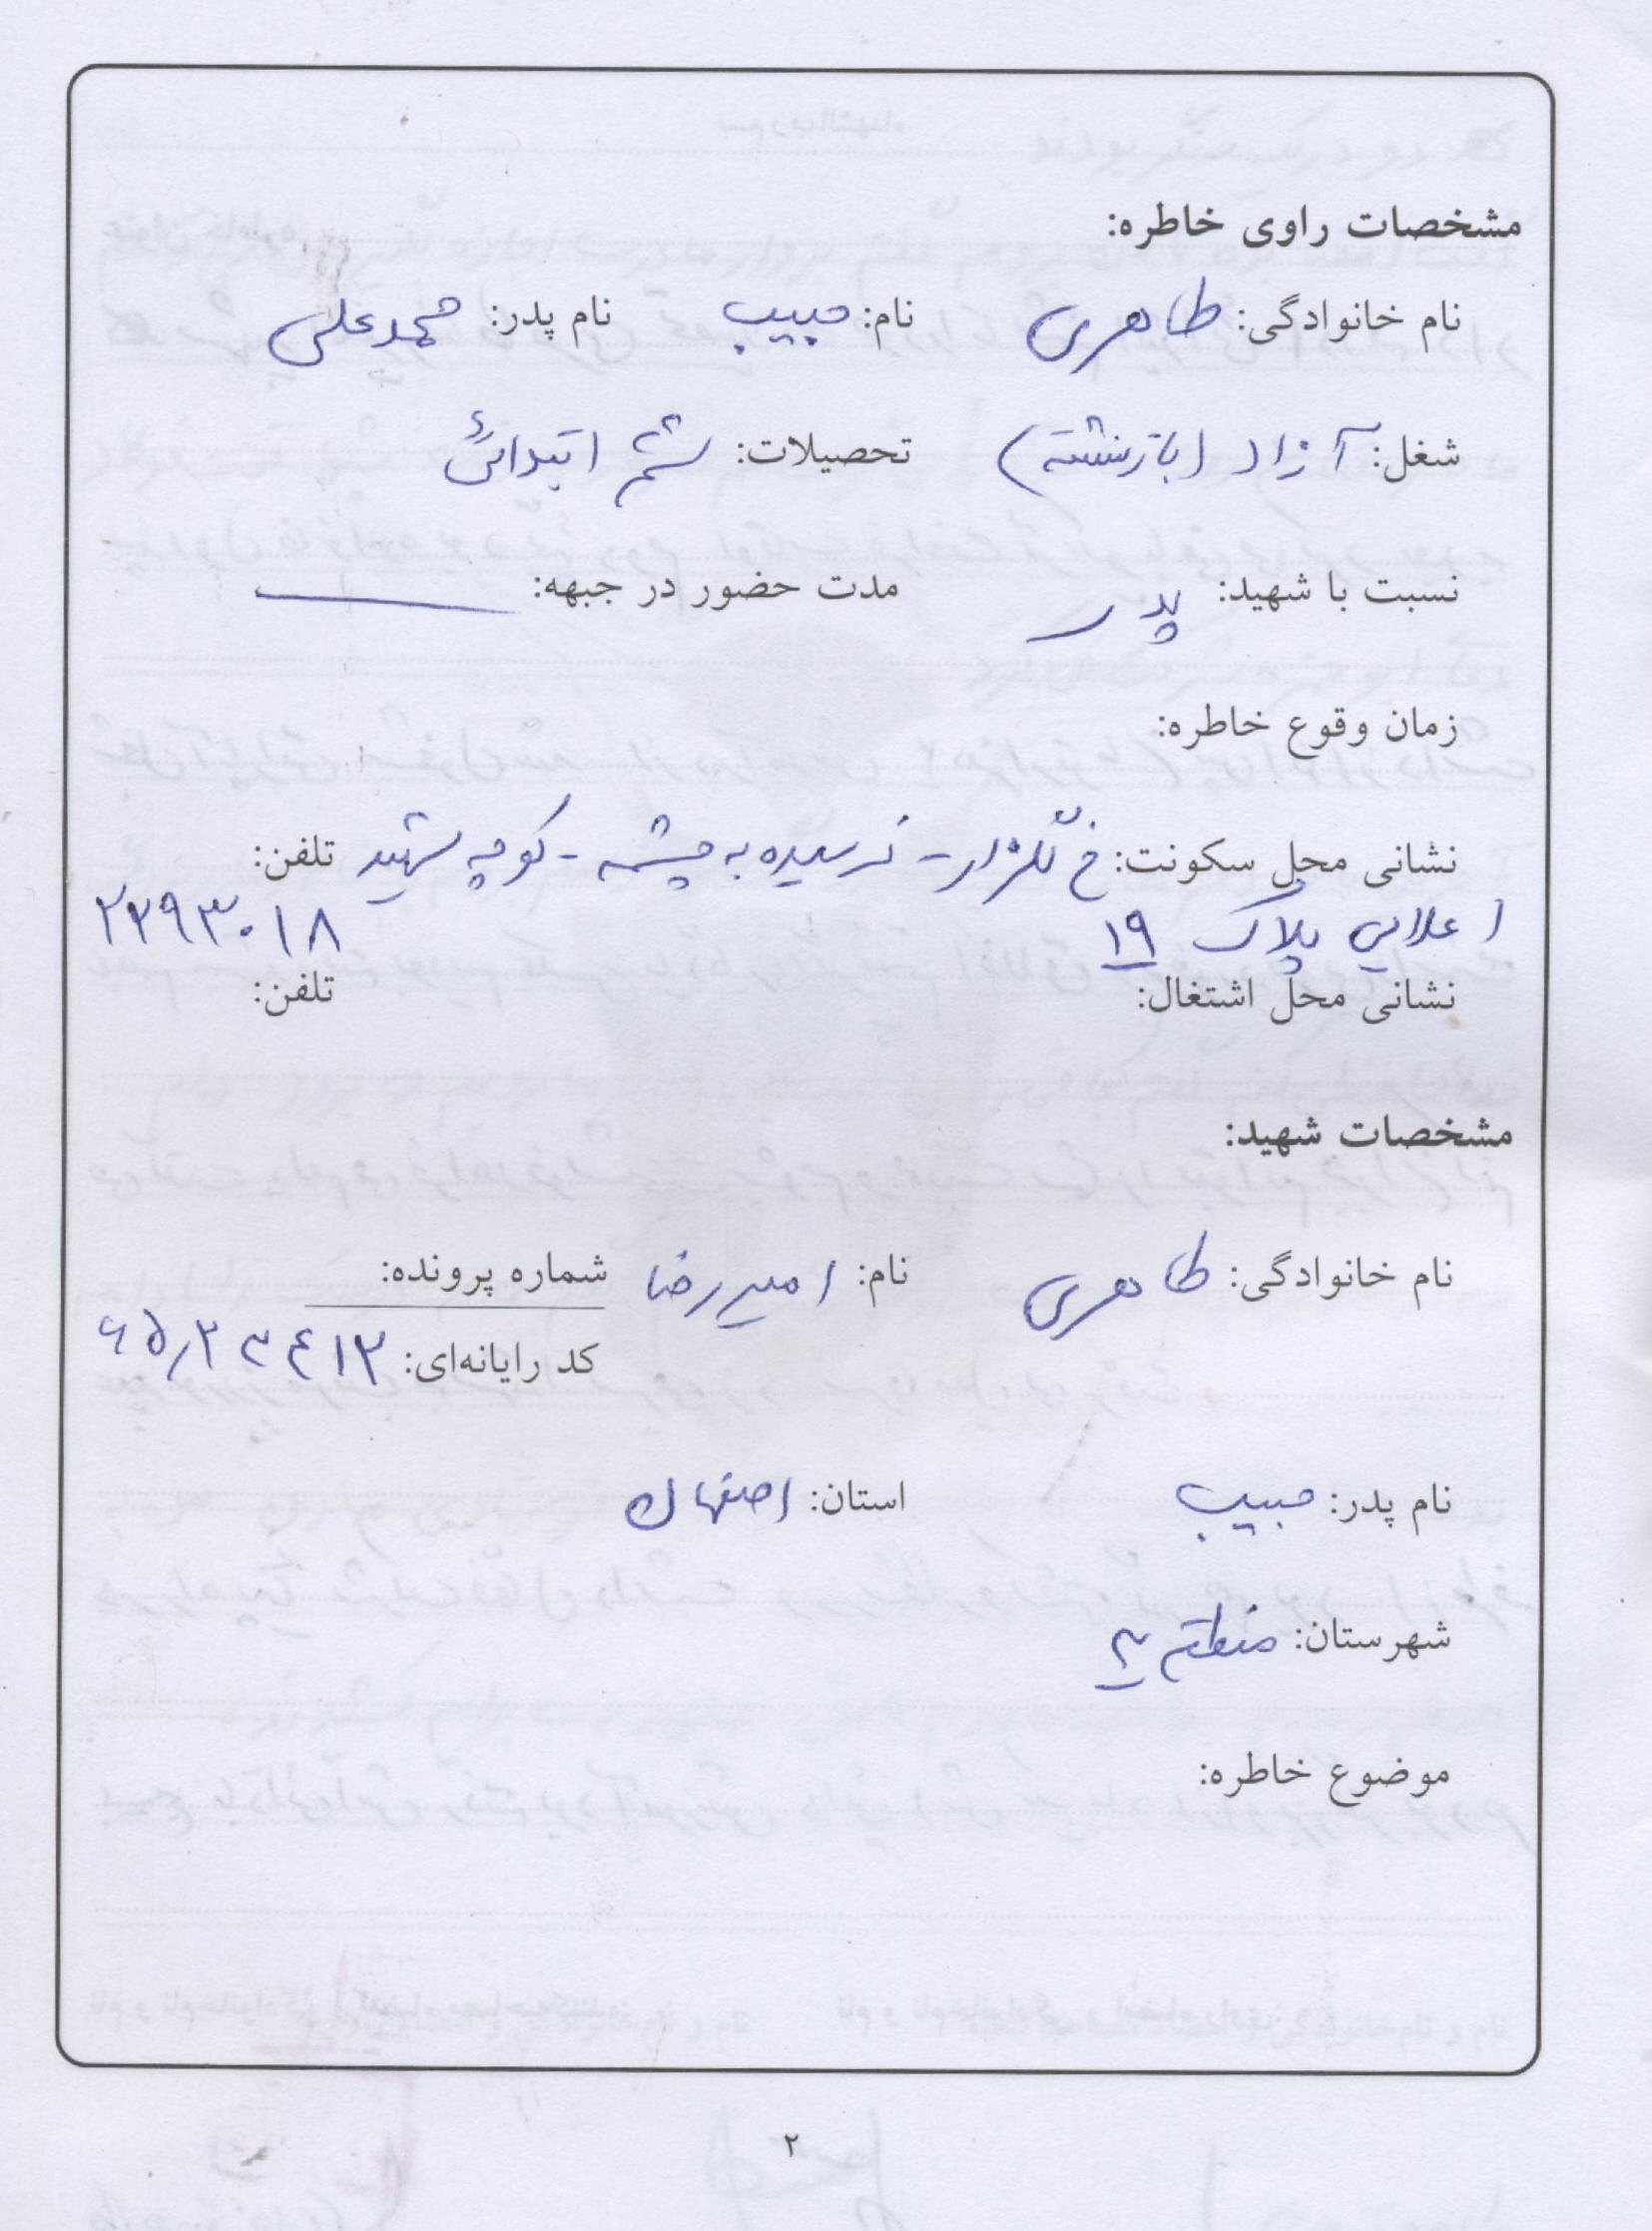 مشخصات راوی خاطره:
نام خانوادگی: طاهری نام: حبیب نام پدر: محمدعلی
شغل: آزاد (بازنشسته) تحصیلات: ششم ابتدائی
نسبت با شهید: پدر مدت حضور در جبهه: ـــ
زمان وقوع خاطره:
نشانی محل سکونت: خ گلزار - نرسیده به چشمه - کوچه شهید تلفن:
اعلایی پلاک ۱۹ ۲۲۹۳۰۱۸
نشانی محل اشتغال: تلفن:
مشخصات شهید:
نام خانوادگی: طاهری نام: امیررضا شماره پرونده:
کد رایانه‌ای:
نام پدر: حبیب استان: اصفهان
شهرستان: منطقه
موضوع خاطره:
۲